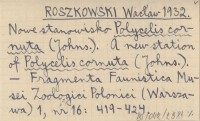 ROSZKOWSKI Wacław 1932.
Nowe stanowisko Polycelis cor-
nuta (Johns.). A new station
of Polycelis cornuta (Johns.).
— Fragmenta Faunistica Mu-
sei Zoologici Polonici (Warsza-
wa) 1, nr 16: 419-424.